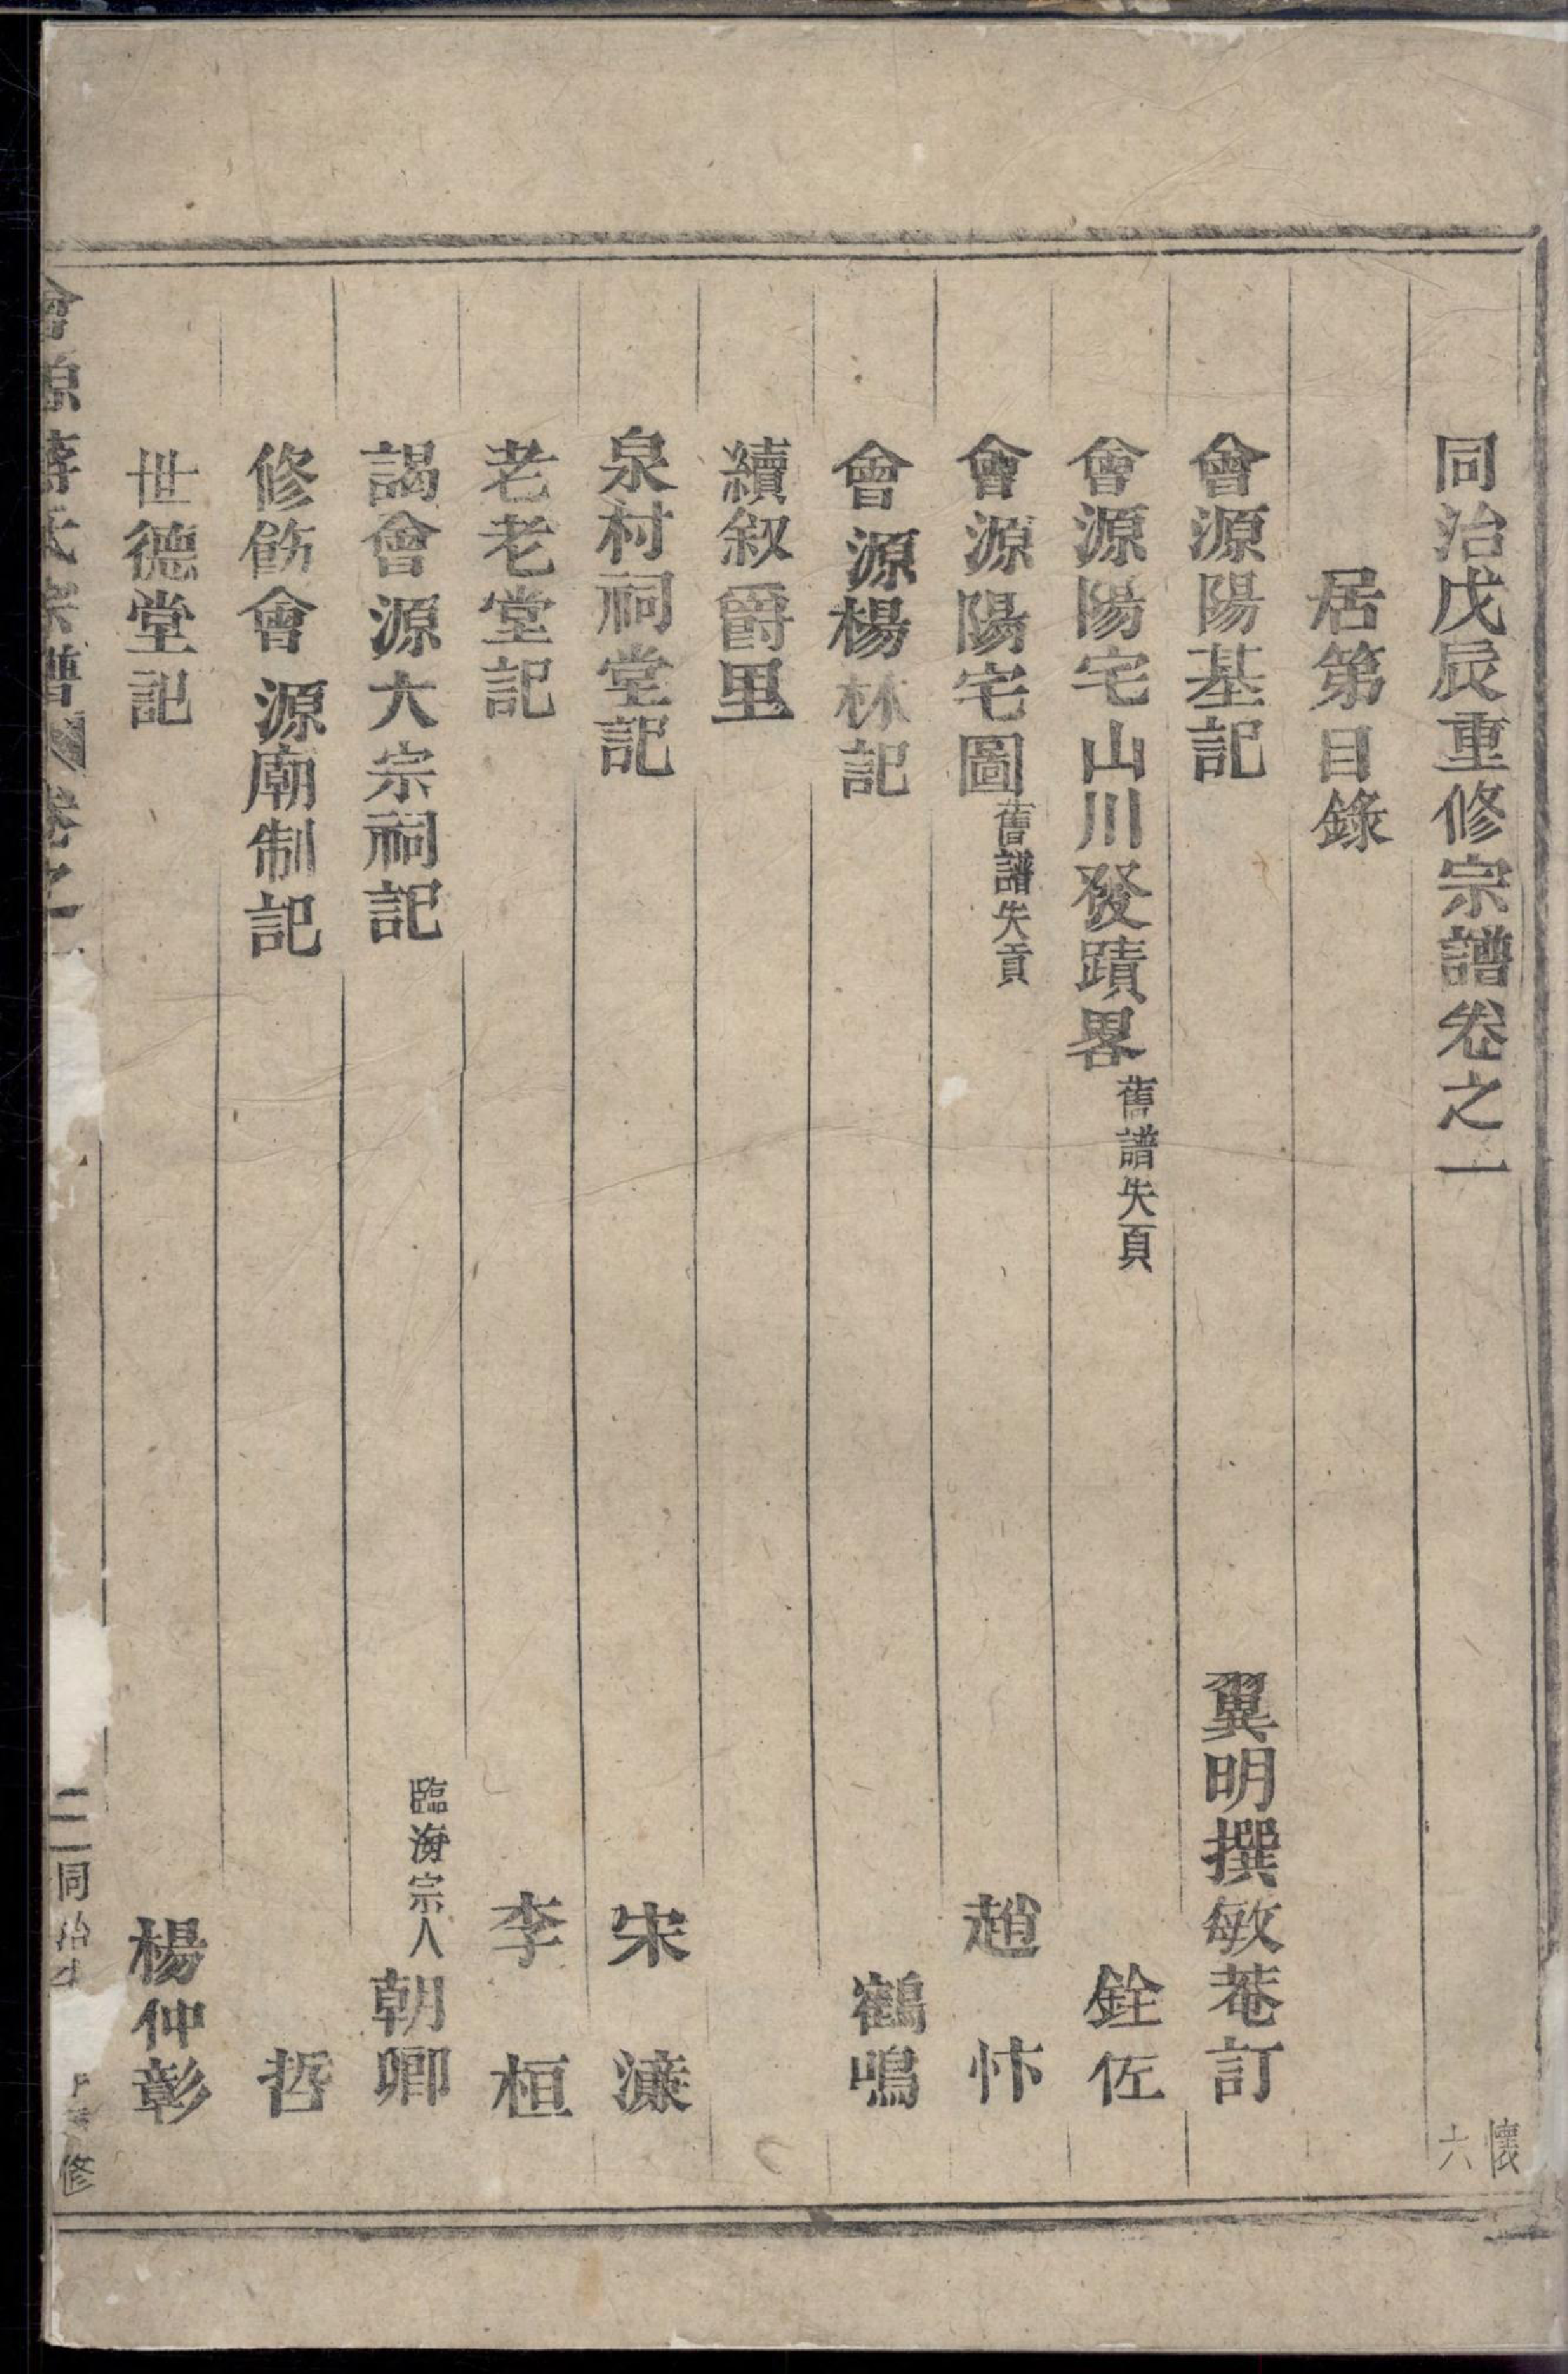 同治戊辰重修宗譜卷之一 懷六
居第目錄
會源陽基記 翼明撰敏菴訂
會源陽宅山川發蹟畧舊譜失頁 銓佐
會源陽宅圖舊譜失頁 趙忭
會源楊林記 鶴鳴
續叙爵里
泉村祠堂記 宋濂
老老堂記 李桓
謁會源大宗祠記 臨海宗人朝卿
修飭會源廟制記 哲
世德堂記 楊仲彰
會源蔣氏宗譜 卷之一 二 同治 修